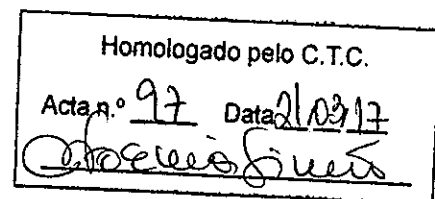 Homologado pelo C.T.C.
Acta n.º 97 Data 2/03/17